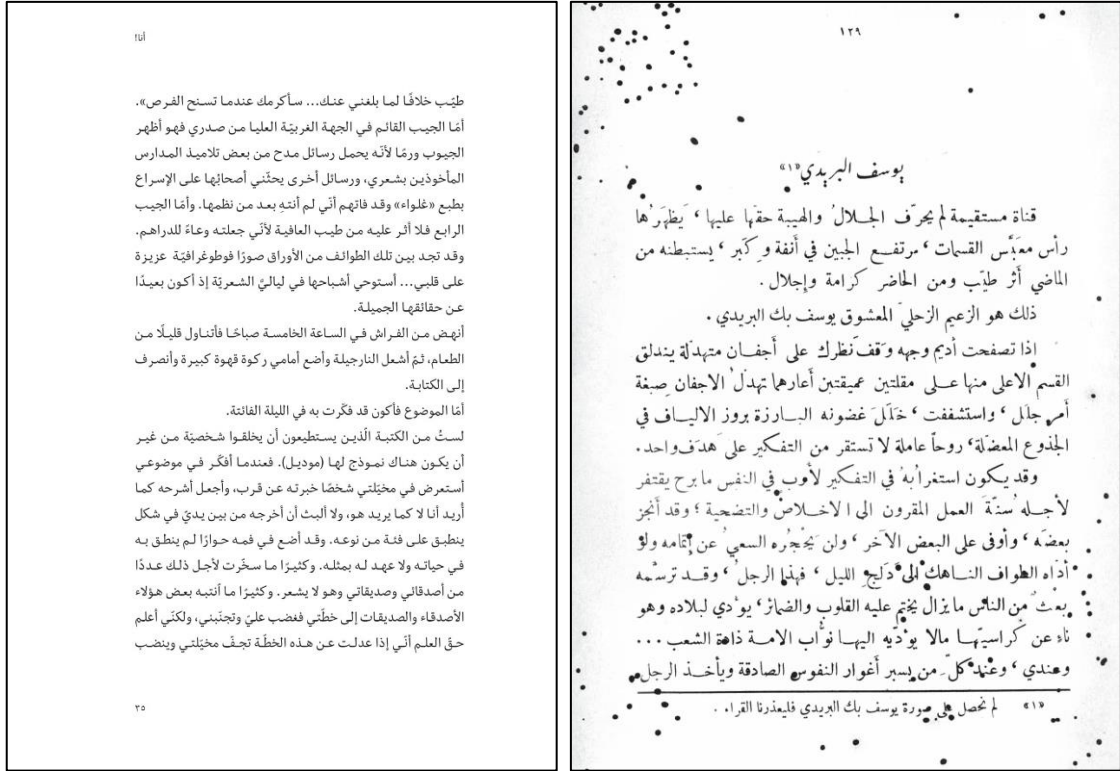 أنا!
طيّب خلافًا لما بلغني عنك... سأكرمك عندما تسنح الفرص».
أمّا الجيب القائم في الجهة الغربيّة العليا من صدري فهو أظهر
الجيوب ورمًا لأنّه يحمل رسائل مدح من بعض تلاميذ المدارس
المأخوذين بشعري، ورسائل أخرى يحثّني أصحابُها على الإسراع
بطبع «غلواء» وقد فاتهم أنّي لم أنتهِ بعد من نظمها. وأمّا الجيب
الرابع فلا أثر عليه من طيب العافية لأنّي جعلته وعاءً للدراهم.
وقد تجد بين تلك الطوائف من الأوراق صورًا فوطوغرافيّة عزيزة
على قلبي... أستوحي أشباحها في لياليَّ الشعريّة إذ أكون بعيدًا
عن حقائقها الجميلة.
أنهض من الفراش في الساعة الخامسة صباحًا فأتناول قليلًا من
الطعام، ثمّ أشعل النارجيلة وأضع أمامي ركوة قهوة كبيرة وأنصرف
إلى الكتابة.
أمّا الموضوع فأكون قد فكّرت به في الليلة الفائتة.
لستُ من الكتبة الّذين يستطيعون أن يخلقوا شخصيّة من غير
أن يكون هناك نموذج لها (موديل). فعندما أفكّر في موضوعي
أستعرض في مخيّلتي شخصًا خبرته عن قرب، وأجعل أشرحه كما
أريد أنا لا كما يريد هو، ولا ألبث أن أخرجه من بين يديّ في شكل
ينطبق على فئة من نوعه. وقد أضع في فمه حوارًا لم ينطق به
في حياته ولا عهد له بمثله. وكثيرًا ما سخّرت لأجل ذلك عددًا
من أصدقائي وصديقاتي وهو لا يشعر. وكثيرًا ما أنتبه بعض هؤلاء
الأصدقاء والصديقات إلى خطّتي فغضب عليّ وتجنّبني، ولكنّي أعلم
حقّ العلم أنّي إذا عدلت عن هذه الخطّة تجفّ مخيّلتي وينضب
٣٥
١٢٩
يوسف البريدي«١»
قناة مستقيمة لم يحرّف الجلالُ والهيبة حقها عليها، يَظهَرُها
رأس معَبَّس القسمات، مرتفع الجبين في أنفة وكبر، يستبطنه من
الماضي أثر طيّب ومن الحاضر كرامة وإجلال.
ذلك هو الزعيم الزحليّ المعشوق يوسف بك البريدي.
اذا تصفحت أديم وجهه وقف نظرك على أجفان متهدّلة يندلق
القسم الاعلى منها على مقلتين عميقتين أعارهما تهدّلُ الاجفان صبغة
أمر جلل، واستشففت، خَلَلَ غضونه البارزة بروز الالياف في
الجذوع المعضّلة، روحاً عاملة لا تستقر من التفكير على هدف واحد.
وقد يكون استغرابهُ في التفكير لأوب في النفس ما برح يقتفر
لأجله سُنّةَ العمل المقرون الى الاخلاص والتضحية؛ وقد أنجز
بعضَه، وأوفى على البعض الآخر، ولن يَحْجُره السعيُ عن إتمامه ولو
أدّاه الطواف الناهك الى دَلَج الليل، فهذا الرجلُ، وقد ترسّمه
بعثٌ من الناس ما يزال يختِم عليه القلوب والضمائر، يؤدي لبلاده وهو
ناءٍ عن كراسيّها مالا يؤدّيه اليها نوّاب الامة ذاهة الشعب ...
وعندي، وعند كلّ من يسبر أغوار النفوس الصادقة ويأخذ الرجل
«١» لم نحصل على صورة يوسف بك البريدي فليعذرنا القراء.